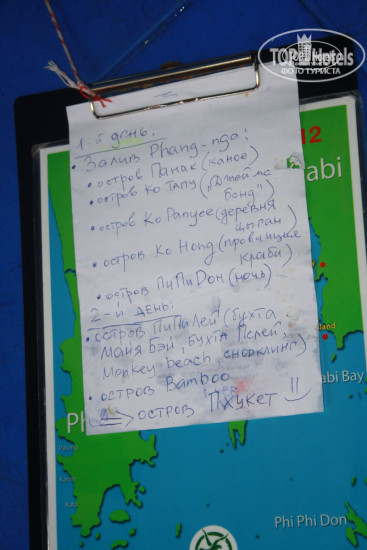 TOPHotels
ФОТО ТУРИСТА
1-й день:
• Залив Phang-nga:
• остров Панак (каноэ)
• остров Ко Тапу („Джеймс
Бонд")
• остров Ко Panyee (деревня
цыган)
• остров Ко Hong (провинция
краби)
• остров ПиПиДон (ночь)
2-й день:
• остров ПиПиЛей (бухта
Майя Бэй, Бухта Пслей,
Monkey beach снорклинг)
• остров Bamboo
=> остров Пхукет
12
abi
land
abi Bay
Patong
Karon
Kata
Phi Phi Don